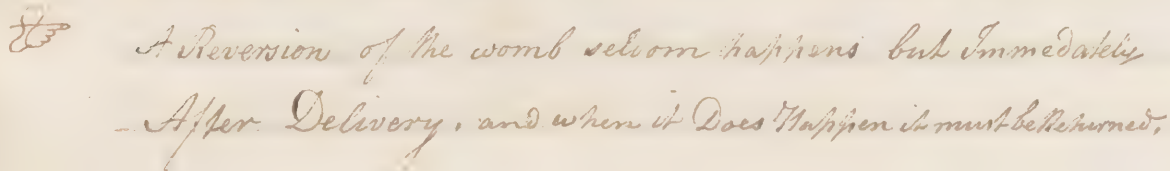 A Reversion of the womb seldom happens but Immedately
After Delivery, and when it Does Happen it must be Returned,